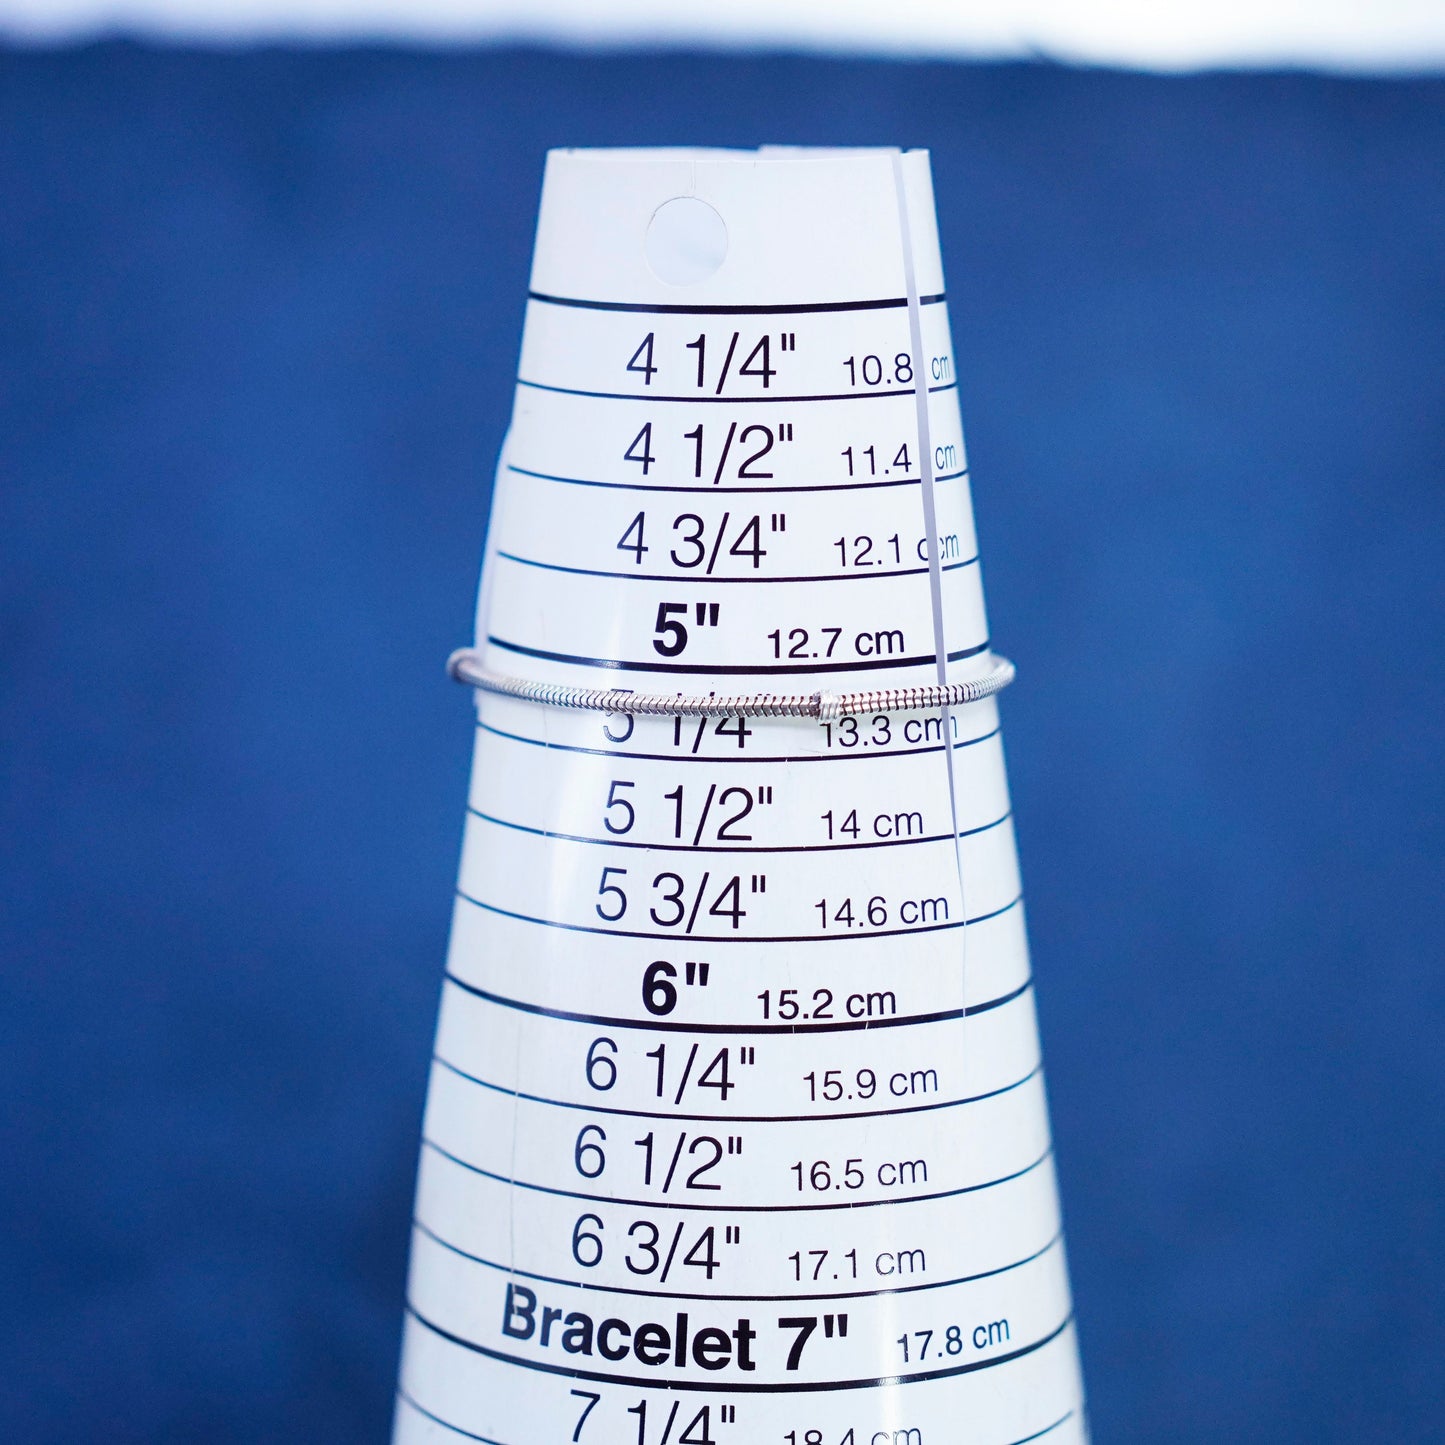 4 1/4" 10.8 cm
4 1/2" 11.4 cm
4 3/4" 12.1 cm
5" 12.7 cm
5 1/4" 13.3 cm
5 1/2" 14 cm
5 3/4" 14.6 cm
6" 15.2 cm
6 1/4" 15.9 cm
6 1/2" 16.5 cm
6 3/4" 17.1 cm
Bracelet 7" 17.8 cm
7 1/4" 18.4 cm